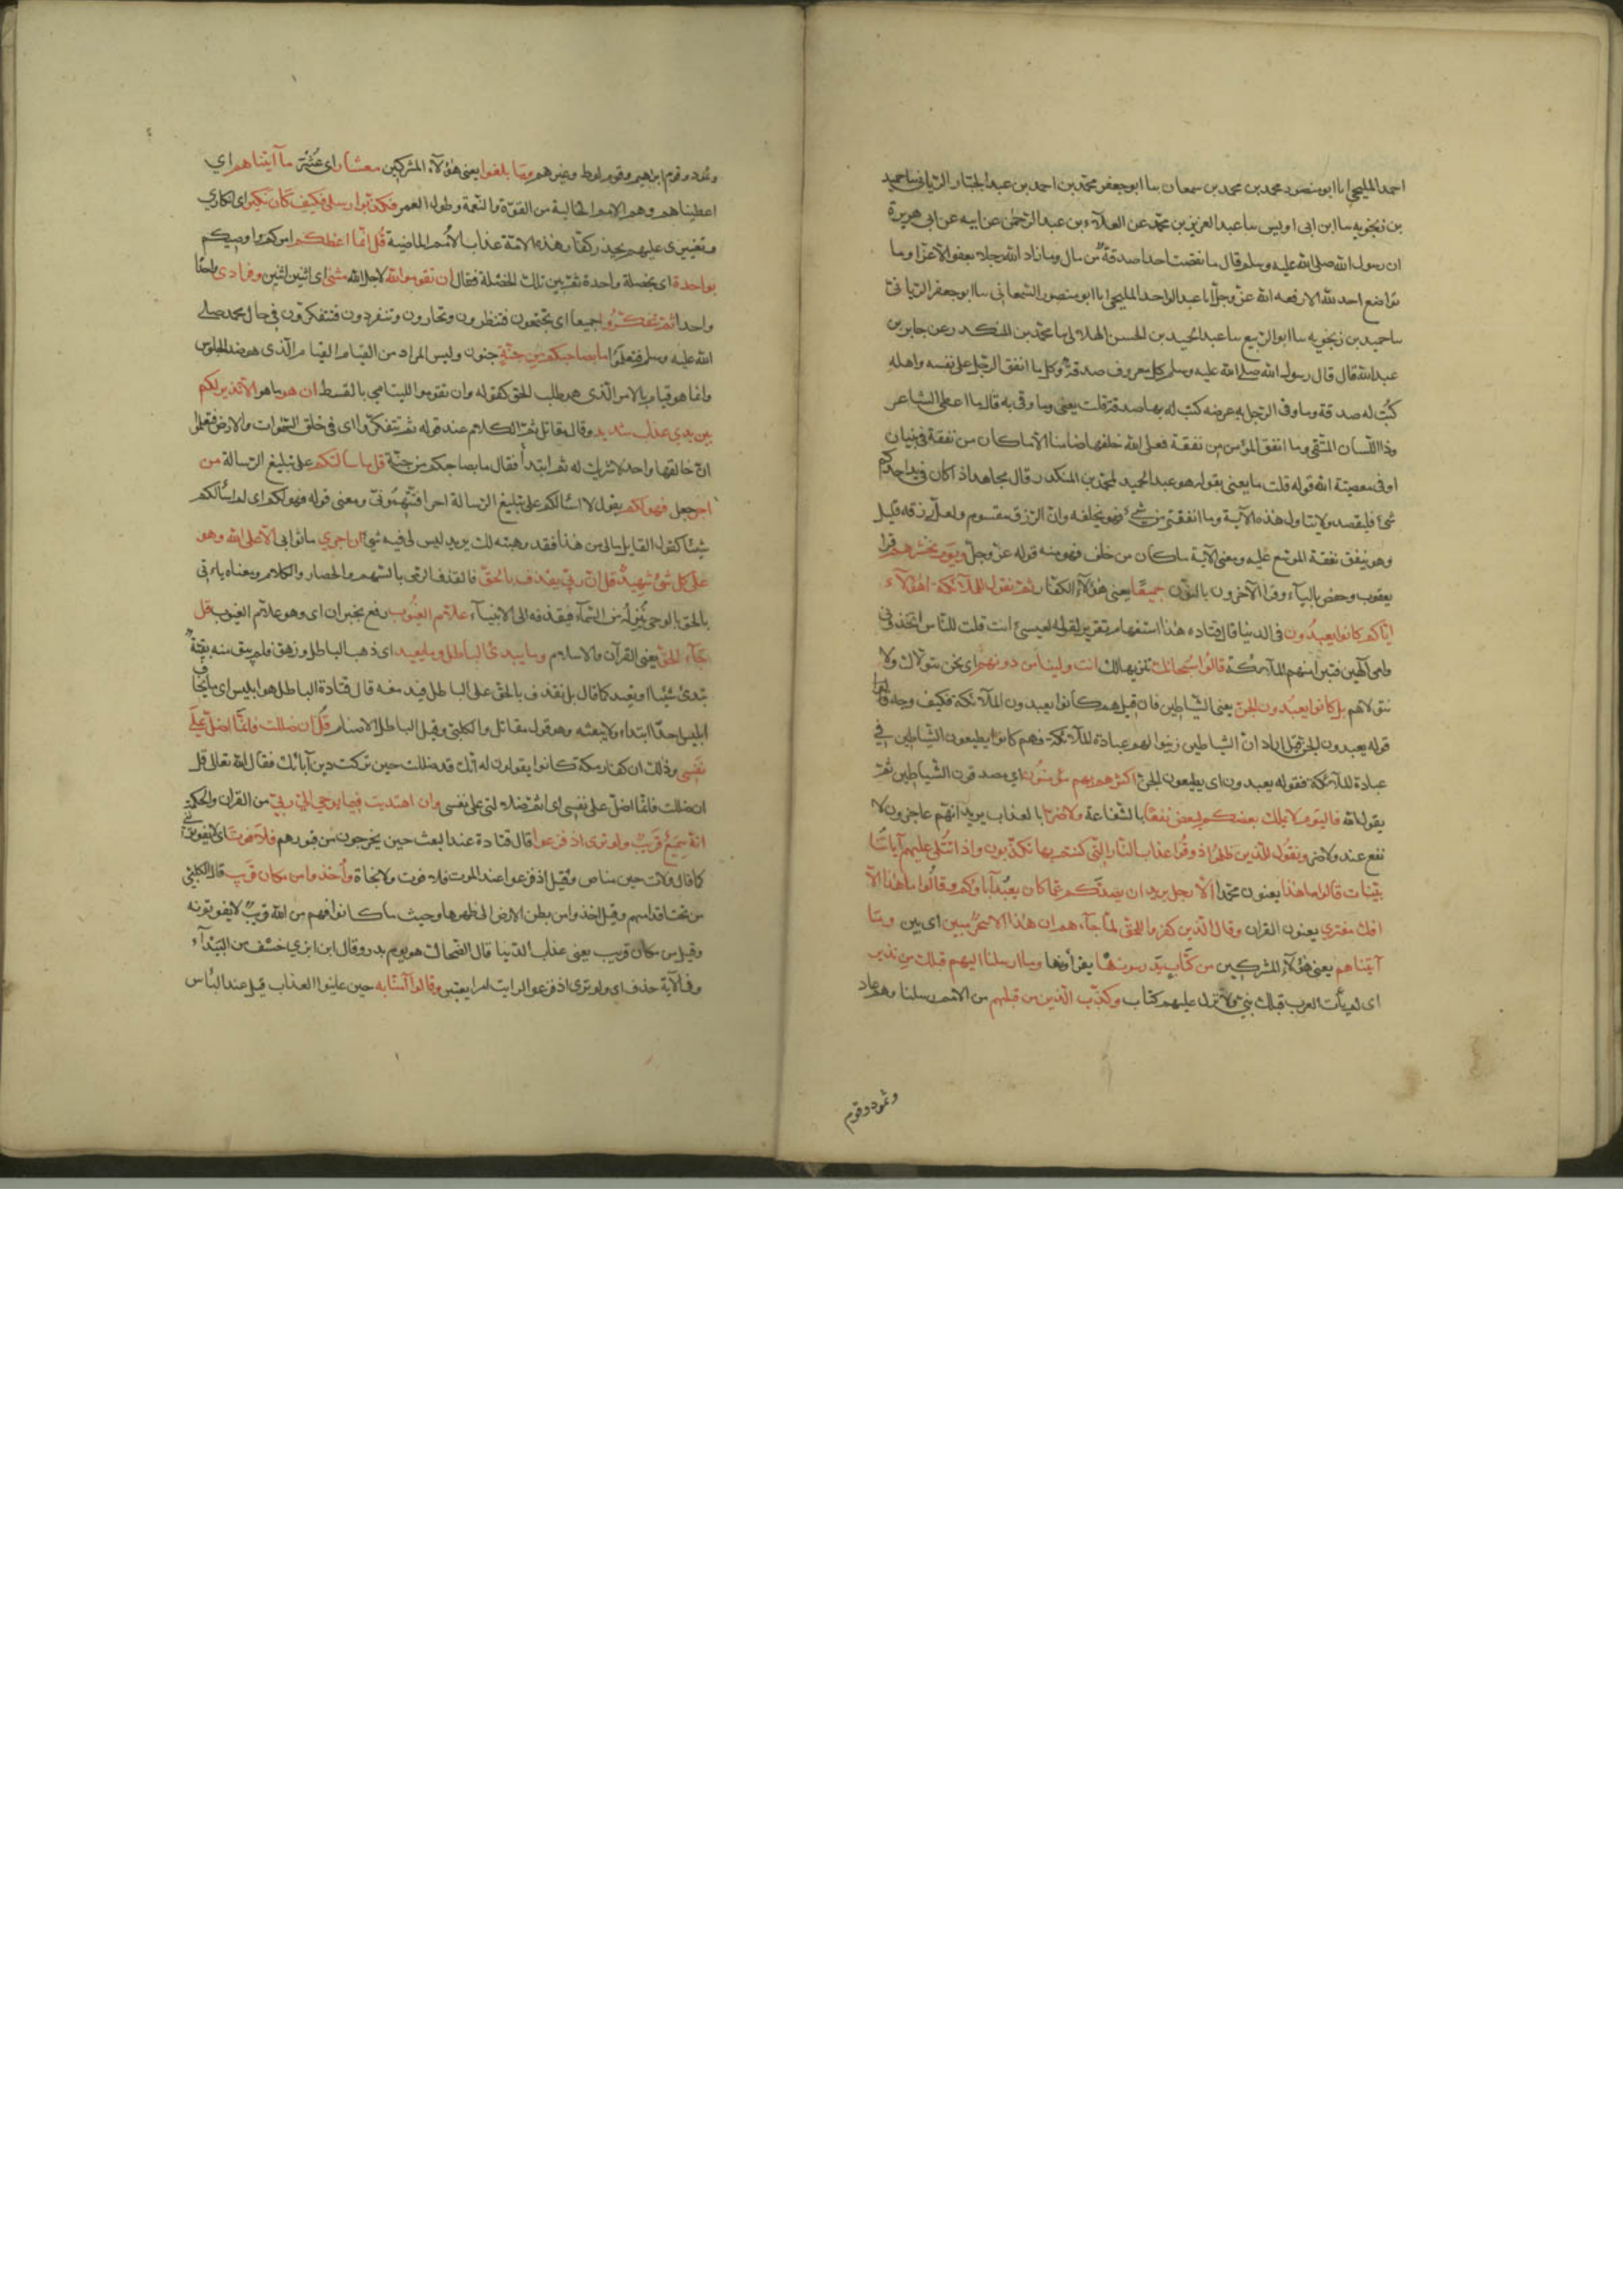 احمد المليحي اباابو منصور محمد بن محمد بن سمعان سا ابو جعفر محمد بن احمد بن عبد الجبار الريانى ساحميد
بن زنجويه سا ابن ابى اويس سا عبد العزيز بن محمد عن العلاء بن عبد الرحمن عن ابيه عن ابى هريرة
ان رسول الله صلى الله عليه وسلم قال ما نقصت احدا صدقة من مال وما زاد الله رجلا بعفو الا عزا وما
تواضع احد لله الا رفعه الله عز وجل انا عبد الواحد المليحي اباابو منصور السمعانى سا ابو جعفر الريانى
ساحميد بن زنجويه سا ابو الربيع سا عبد الحميد بن الحسن الهلالى سا محمد بن المنكدر عن جابر بن
عبد الله قال قال رسول الله صلى الله عليه وسلم كل معروف صدقة وكل ما انفق الرجل على نفسه واهله
كتب له صدقة وما وقى الرجل به عرضه كتب له بها صدقة قلت يعنى وما وقى به قال ما اعطى الشاعر
وذا اللسان المتقى وما انفق المؤمن من نفقة فعلى الله خلفها ضامنا الا ما كان من نفقة فى بنيان
او فى معصية الله قوله قلت ما يعنى يقوله هو عبد الحميد لمحمد بن المنكدر قال مجاهد اذا كان فى يد احدكم
شئ فليقصد ولا يتاول هذه الآية وما انفقتم من شئ فهو يخلفه وان الرزق مقسوم ولعل رزقه قليل
وهو ينفق نفقة الموسع عليه ومعنى الآية ما كان من خلف فهو منه قوله عز وجل ويوم نحشرهم قرا
يعقوب وحفص بالياء وقرا الآخرون بالنون جميعا يعنى هؤلاء الكفار ثم نقول للملائكة اهؤلاء
اياكم كانوا يعبدون فى الدنيا قال قتادة هذا استفهام تقرير لقوله لعيسى انت قلت للناس اتخذونى
وامى آلهين فتبرا منهم الملائكة قالوا سبحانك تنزيها لك انت ولينا من دونهم اى نحن نتولاك ولا
نتولاهم بل كانوا يعبدون الجن يعنى الشياطين فان قيل هم كانوا يعبدون الملائكة فكيف وجه
قوله يعبدون الجن قيل اراد ان الشياطين زينوا لهم عبادة الملائكة فهم كانوا يطيعون الشياطين فى
عبادة الملائكة فقوله يعبدون اى يطيعون الجن اكثرهم بهم مؤمنون اي مصدقون الشياطين ثم
يقول الله فاليوم لا يملك بعضكم لبعض نفعا بالشفاعة ولا ضرا بالعذاب يريد انهم عاجزون لا
نفع عندهم ولا ضر ونقول للذين ظلموا ذوقوا عذاب النار التى كنتم بها تكذبون واذا تتلى عليهم آياتنا
بينات قالوا ما هذا يعنون محمدا الا رجل يريد ان يصدكم عما كان يعبد آباؤكم وقالوا ما هذا الا
افك مفترى يعنون القران وقال الذين كفروا للحق لما جاءهم ان هذا الا سحر مبين اى بين وما
آتيناهم يعنى هؤلاء المشركين من كتاب يدرسونها يقرأونها وما ارسلنا اليهم قبلك من نذير
اى لم يأت العرب قبلك نبى ولا نزل عليهم كتاب وكذب الذين من قبلهم من الامم رسلنا وهم عاد
وثمود وقوم
وثمود وقوم ابراهيم وقوم لوط وغيرهم وما بلغوا يعنى هؤلاء المشركين معشار اى عشر ما آتيناهم اي
اعطيناهم وهم الامم الخالية من القوة والنعمة وطول العمر فكذبوا رسلى فكيف كان نكير اى انكارى
وتغييرى عليهم يحذر كفار هذه الامة عذاب الامم الماضية قل انما اعظكم امركم واوصيكم
بواحدة اى بخصلة واحدة ثم بين تلك الخصلة فقال ان تقوموا لله لاجل الله مثنى اى اثنين اثنين وفرادى واحدا
واحدا ثم تتفكروا جميعا اى تجتمعون فتنظرون وتحاورون وتنفردون فتتفكرون فى حال محمد صلى
الله عليه وسلم فتعلموا ما بصاحبكم من جنة جنون وليس المراد من القيام القيام الذى هو ضد الجلوس
وانما هو قيام بالامر الذى هو طلب الحق كقوله وان تقوموا لليتامى بالقسط ان هو ما هو الا نذير لكم
بين يدى عذاب شديد وقال مقاتل تم الكلام عند قوله ثم تتفكروا اى فى خلق السموات والارض فتعلموا
ان خالقها واحد لا شريك له ثم ابتدأ فقال ما بصاحبكم من جنة قل ما سألتكم على تبليغ الرسالة من
اجر جعل فهو لكم يقول لا اسالكم على تبليغ الرسالة اجرا فتتهمونى ومعنى قوله فهو لكم اى لم اسألكم
شيئا كقول القايل مالى من هذا فقد وهبته لك يريد ليس لى فيه شئ ان اجري ما ثوابى الا على الله وهو
على كل شئ شهيد قل ان ربى يقذف بالحق فالقذف الرمى بالسهم والحصار والكلام ومعناه ياتى
بالحق بالوحى ينزله من السماء فيقذفه الى الانبياء علام الغيوب رفع بخبر ان اى وهو علام الغيوب قل
جاء الحق يعنى القرآن والاسلام وما يبدئ الباطل وما يعيد اى ذهب الباطل وزهق فلم يبق منه بقية
تبدئ شيئا او يعيد كما قال بل نقذف بالحق على الباطل فيدمغه قال قتادة الباطل هو ابليس اى ما يخلق
ابليس احدا ابتداء ولا يبعثه وهو قول مقاتل والكلبى وقيل الباطل الاصنام قل ان ضللت فانما اضل على
نفسى وذلك ان كفار مكة كانوا يقولون له انك قد ضللت حين تركت دين آبائك فقال الله تعالى قل
ان ضللت فانما اضل على نفسى اى اثم ضلالتى على نفسى وان اهتديت فبما يوحى الى ربى من القران والحكمة
انه سميع قريب ولو ترى اذ فزعوا قال قتادة عند البعث حين يخرجون من قبورهم فلا فوت اى لا يفوتوننى
كما قال ولات حين مناص وقيل اذ فزعوا عند الموت فلا فوت ولا نجاة وأخذوا من مكان قريب قال الكلبى
من تحت اقدامهم وقيل اخذوا من بطن الارض الى ظهرها وحيث ما كانوا فهم من الله قريب لا يفوتونه
وقيل من مكان قريب يعنى عذاب الدنيا قال الضحاك هو يوم بدر وقال ابن ابزي خسف من البيداء
وفى الآية حذف اى ولو ترى اذ فزعوا لرايت امرا يعتبر وقالوا آمنا به حين عاينوا العذاب قيل عند الباس